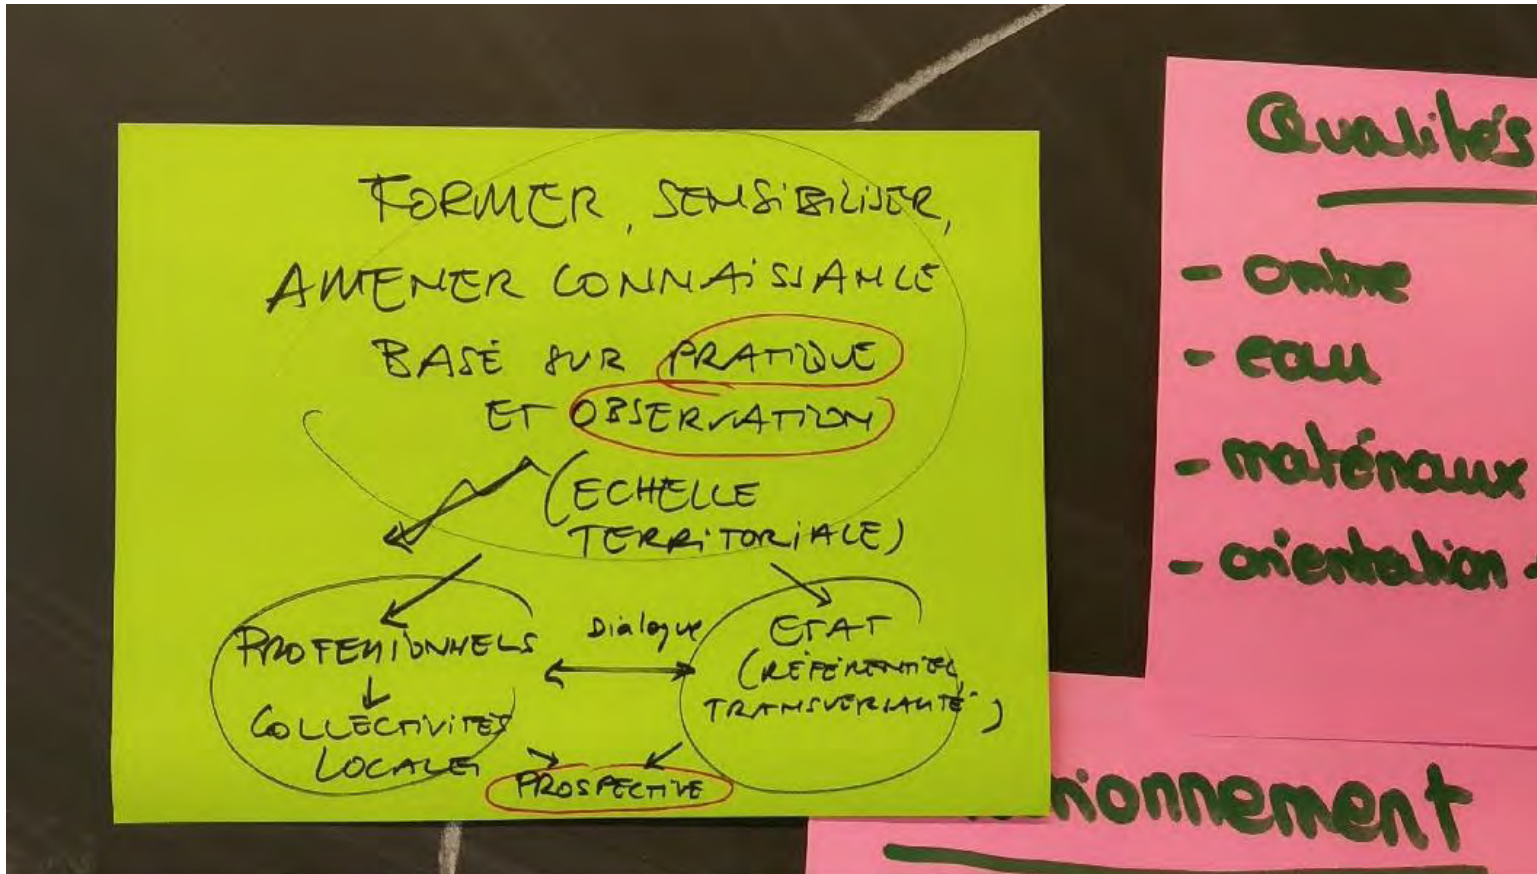 FORMER, SENSIBILISER,
AMENER CONNAISSANCE
BASÉ SUR PRATIQUE
ET OBSERVATION
(ECHELLE
TERRITORIALE)
PROFESSIONNELS
COLLECTIVITÉS
LOCALES
Dialogue
ETAT
(RÉFÉRENTIEL,
TRANSVERSALITÉ)
PROSPECTIVE
Qualités
- ombre
- eau
- matériaux
- orientation -
ionnement